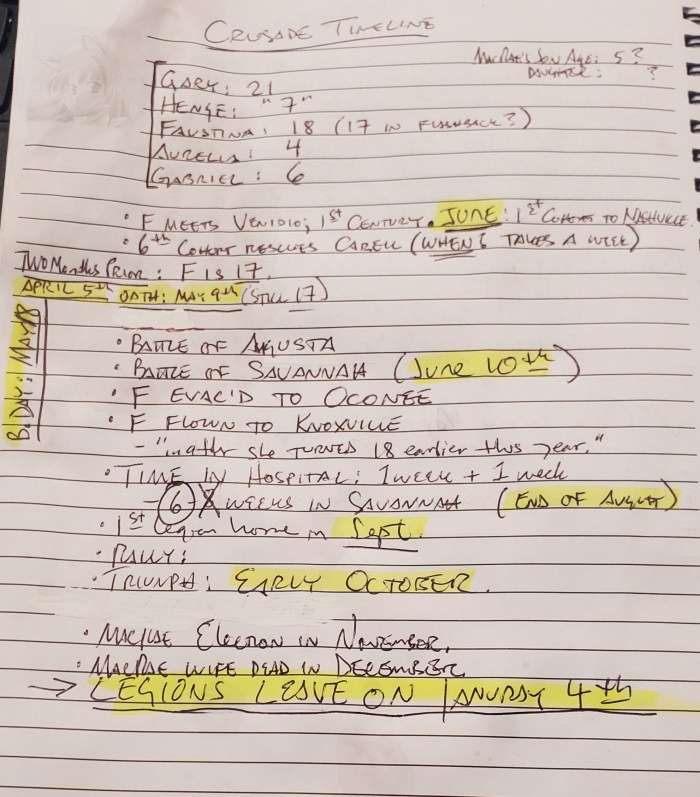 CRUSADE TIMELINE
MACRAE'S SON AGE: 5?
DAUGHTER: ?
GARY: 21
HENGE: "7"
FAUSTINA: 18 (17 IN FLASHBACK?)
AURELIA: 4
GABRIEL: 6
• F MEETS VENIDIO; 1st CENTURY. JUNE: 1st COHORT TO NASHVILLE.
• 6th COHORT RESCUES CARELL (WHEN? TAKES A WEEK)
TWO MONTHS PRIOR: F IS 17.
APRIL 5th OATH: MAY 9th (STILL 17)
B.DAY: MAY 18
• BATTLE OF AUGUSTA
• BATTLE OF SAVANNAH (JUNE 10th)
• F EVAC'D TO OCONEE
• F FLOWN TO KNOXVILLE
- "in after she TURNED 18 earlier this year."
• TIME IN HOSPITAL: 1 week + 1 week
- 6 WEEKS IN SAVANNAH (END OF AUGUST)
• 1st Legion home in Sept.
• RALLY:
• TRIUMPH: EARLY OCTOBER.
• MACRAE Election in NOVEMBER.
• MACRAE WIFE DEAD IN DECEMBER.
→ LEGIONS LEAVE ON JANURAY 4th